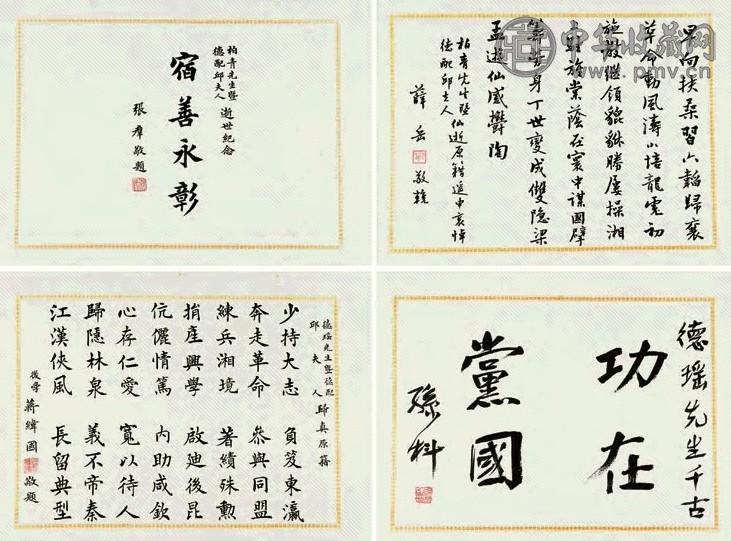 柏青先生暨
德配邱夫人
逝世紀念
宿善永彰
張羣敬題
中华收藏网
www.pmv.cn
早向扶桑習六韜歸襄
革命動風濤小龍初
施教繼領貔貅勝屢操湘
施棠蔭在寰中謀國
身丁世變成雙隱梁
孟遊仙感鬱陶
柏青先生暨
德配邱夫人
仙逝原籍追申哀悼
薛岳 敬輓
德瑤先生暨德配
邱夫人
歸真原籍
少持大志 負笈東瀛
奔走革命 參與同盟
練兵湘境 著績殊勳
捐產興學 啟迪後昆
伉儷情篤 內助咸欽
心存仁愛 寬以待人
歸隱林泉 義不帝秦
江漢俠風 長留典型
後學 蔣緯國 敬題
德瑤先生千古
功在
黨國
孫科